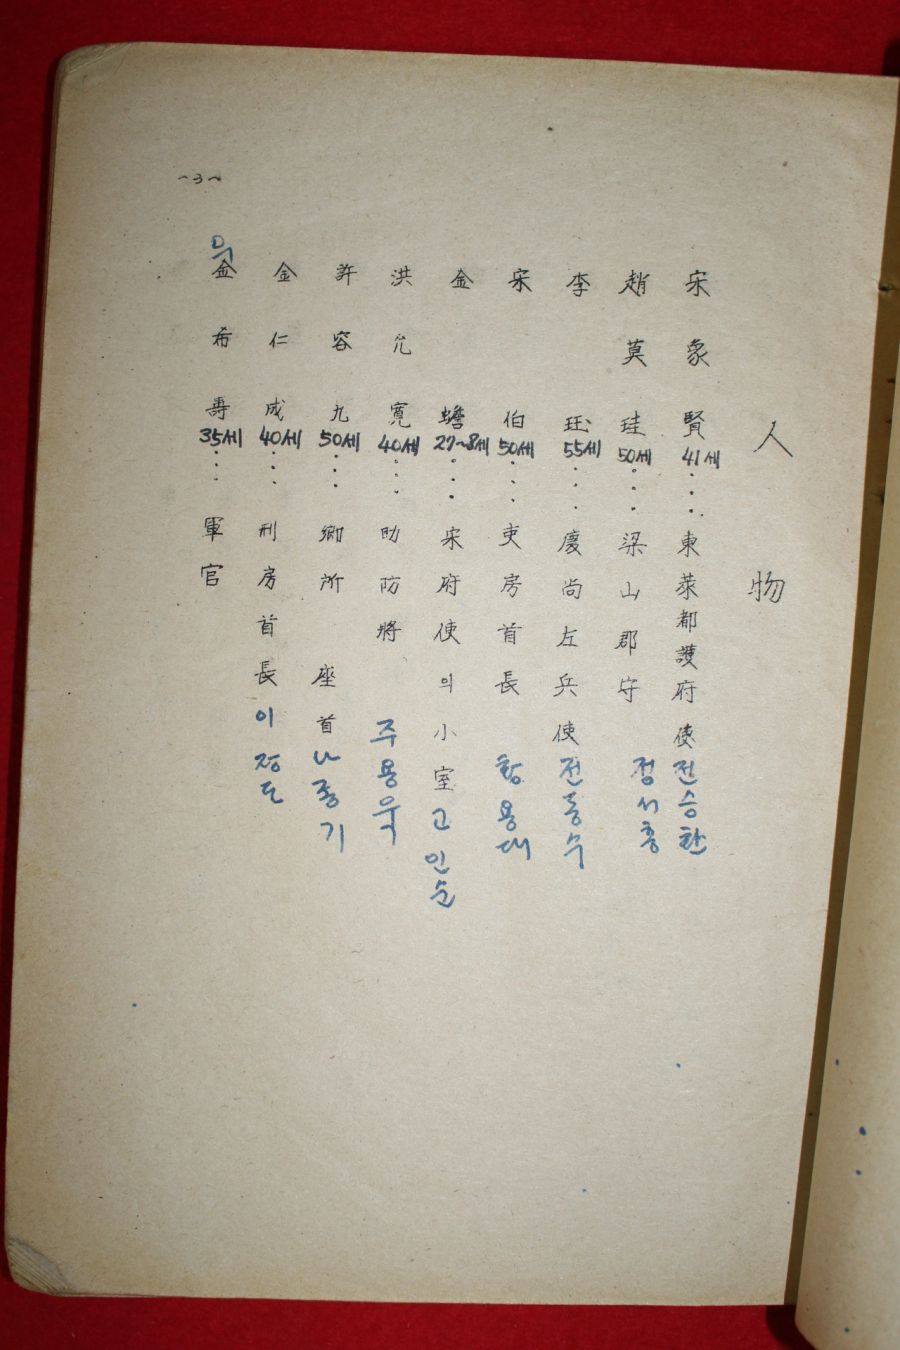 人物
宋象賢 41세 … 東萊都護府使 전승환
趙英珪 50세 … 梁山郡守 정서흥
李珏 55세 … 慶尚左兵使 전흥수
宋伯 50세 … 吏房首長 황용대
金蟾 27~8세 … 宋府使의 小室 고인순
洪允寬 40세 … 助防將 주용욱
許容九 50세 … 鄉所 座首 나종기
金仁成 40세 … 刑房首長 이정도
金希壽 35세 … 軍官
~3~